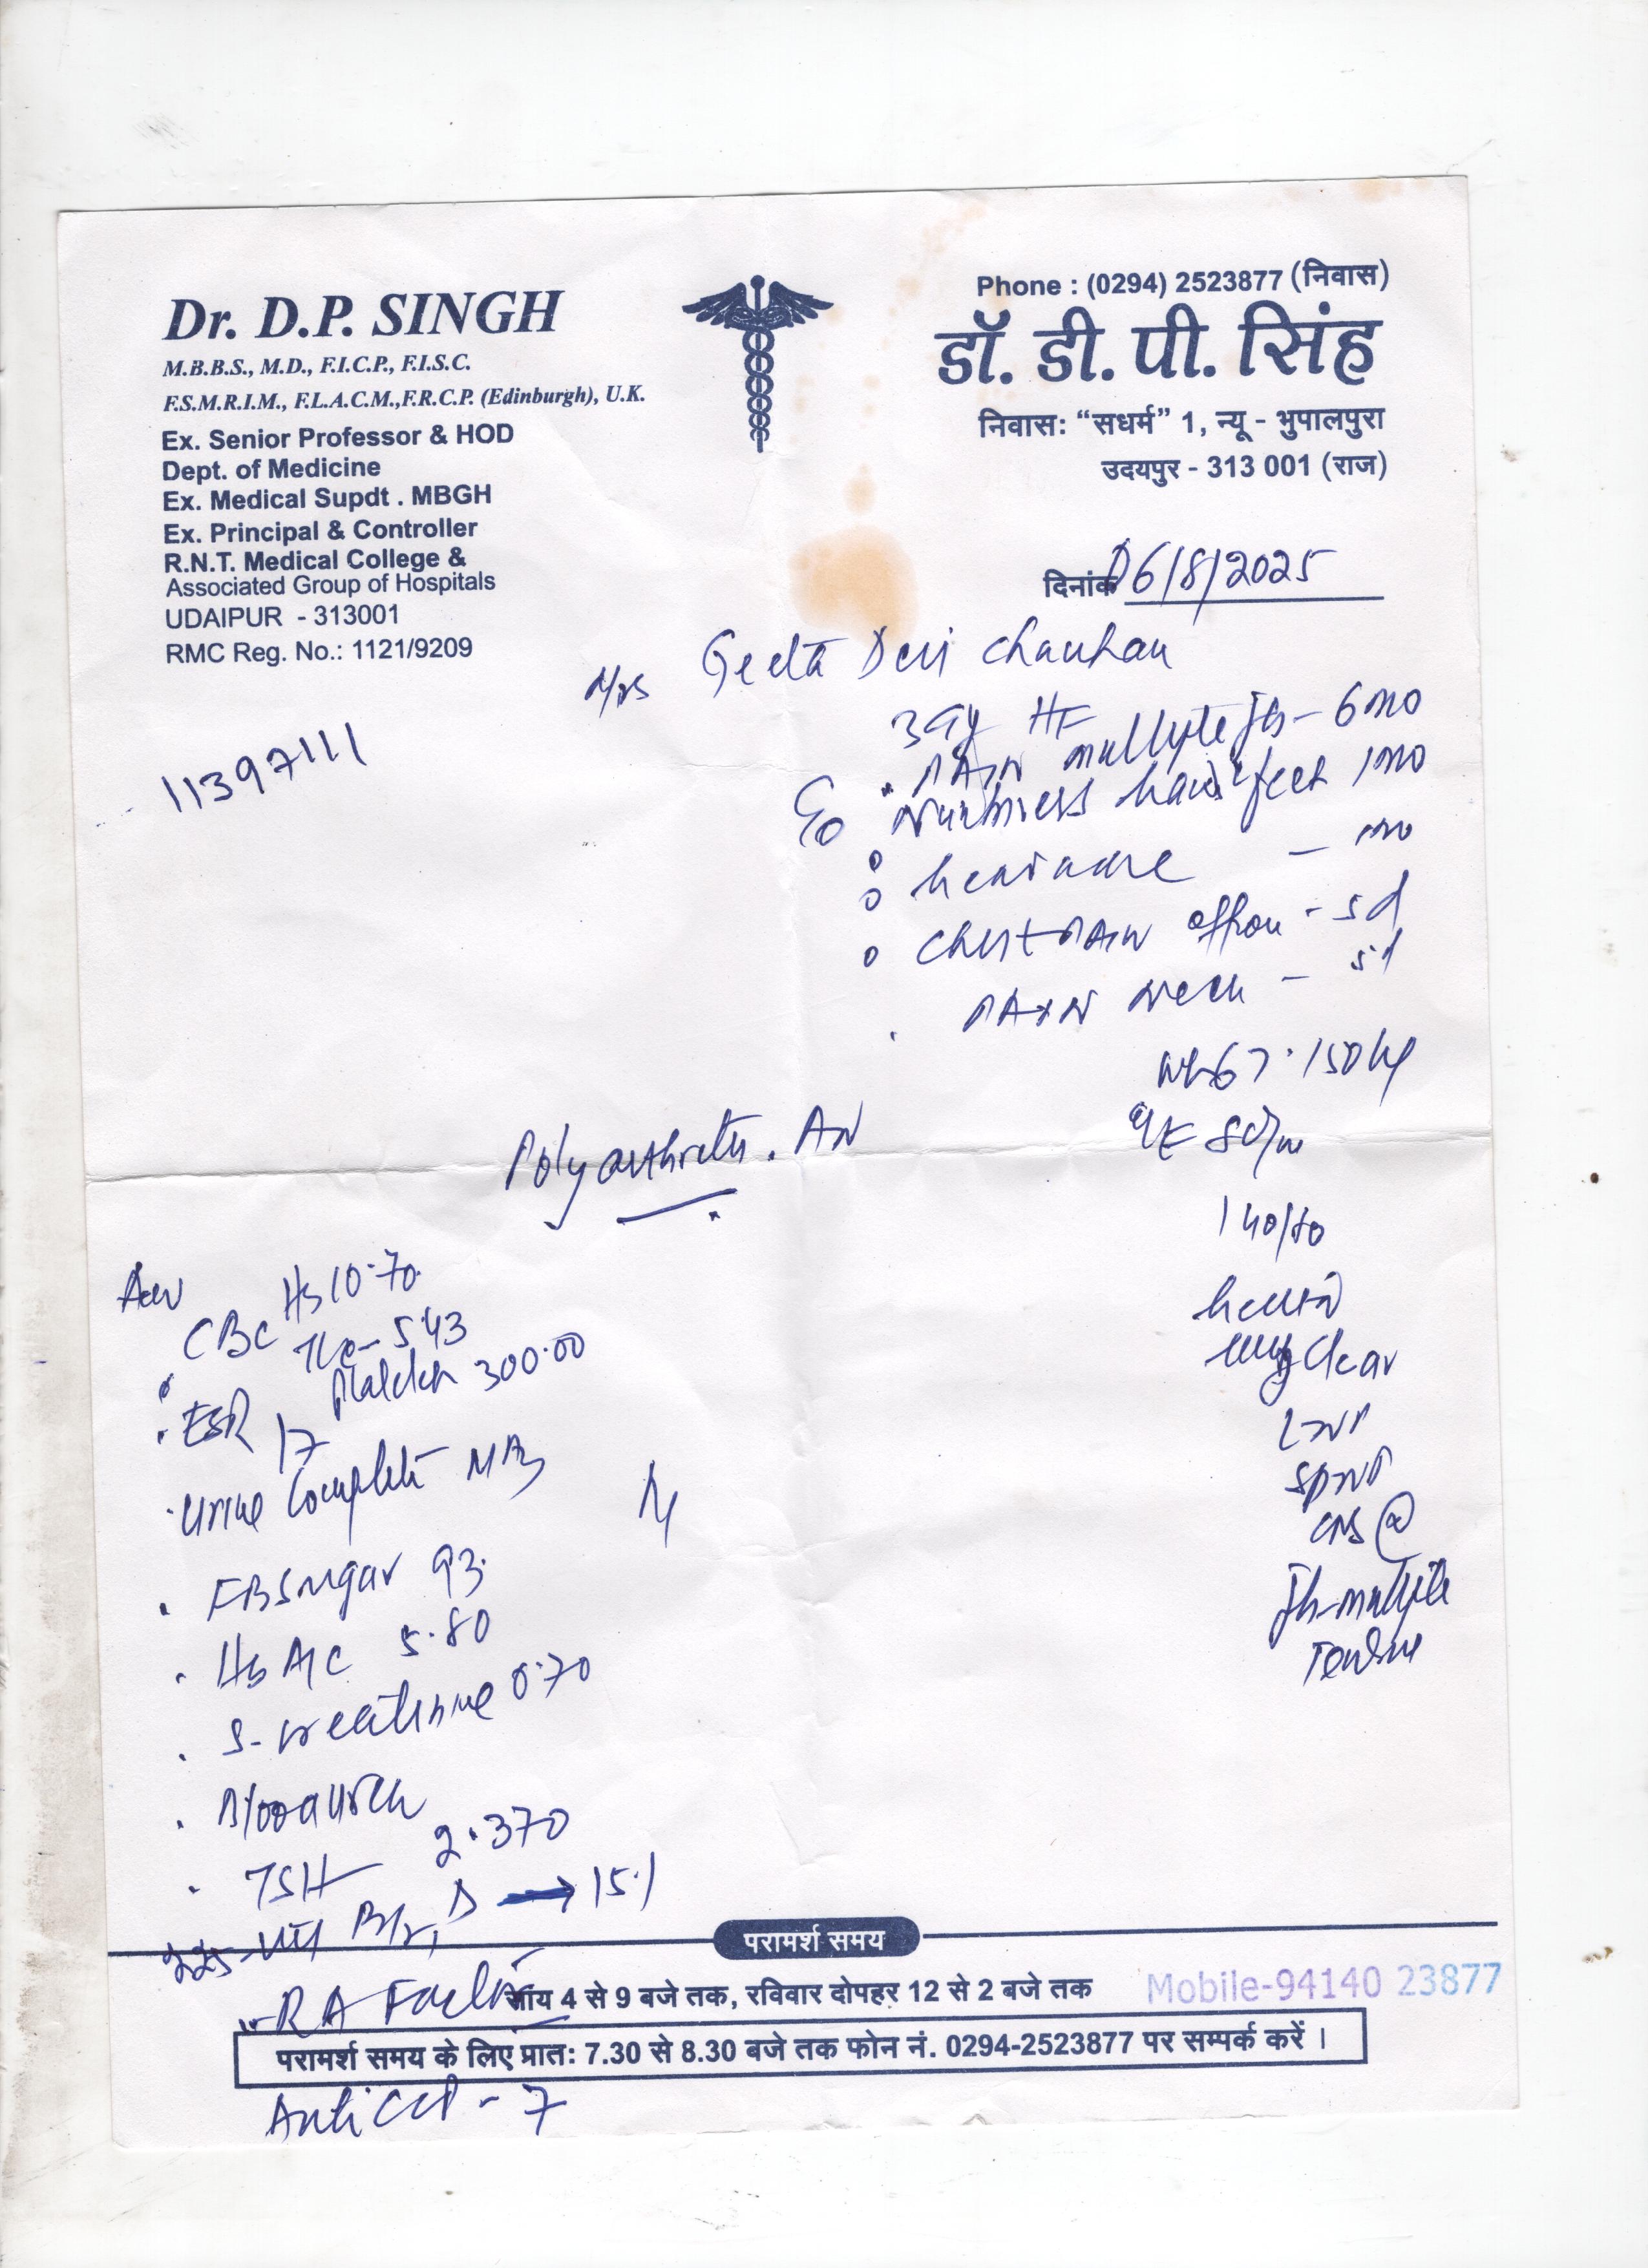 Dr. D.P. SINGH
M.B.B.S., M.D., F.I.C.P., F.I.S.C.
F.S.M.R.I.M., F.L.A.C.M.,F.R.C.P. (Edinburgh), U.K.
Ex. Senior Professor & HOD
Dept. of Medicine
Ex. Medical Supdt . MBGH
Ex. Principal & Controller
R.N.T. Medical College &
Associated Group of Hospitals
UDAIPUR - 313001
RMC Reg. No.: 1121/9209
Phone : (0294) 2523877 (निवास)
डॉ. डी. पी. सिंह
निवास: “सधर्म” 1, न्यू - भुपालपुरा
उदयपुर - 313 001 (राज)
दिनांक 06/8/2025
Mrs Geeta Devi Chauhan
39y HF
11397111
C/o PAIN multiple jts - 6 mo
Numbness hands & feet 1mo
headache - 1mo
chest PAIN off & on - 5d
PAIN neck - 5d
Wt 67.150 kg
O/E 80/m
140/80
Polyarthritis. AN
heart N
lung clear
LNP
SPNP
CNS
Jts-multiple
Tender
Adv
CBC Hb 10.70
TLC - 5.43
Platelet 300.00
ESR 17
Urine Complete
FBSugar 93
HbA1C 5.80
S-creatinine 0.70
Blood urea
TSH 2.370
225-Vit B12, D → 15.1
RA Factor
Anti CCP - 7
परामर्श समय
सांय 4 से 9 बजे तक, रविवार दोपहर 12 से 2 बजे तक
Mobile-94140 23877
परामर्श समय के लिए प्रात: 7.30 से 8.30 बजे तक फोन नं. 0294-2523877 पर सम्पर्क करें ।